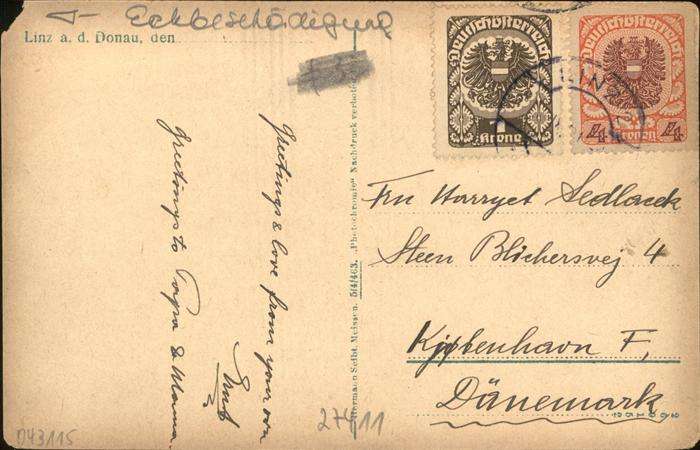 Eckbeschädigung
Linz a. d. Donau, den
Deutschösterreich
1
Krone
Deutschösterreich
4 4
Kronen
LINZ
Greetings & love from your own
Greetings to Papa & Mama
Hermann Seibt, Meissen. 5/4/463. „Photochromie" Nachdruck verboten
Fru Harryet Sedlacek
Steen Blichersvej 4
Kjöbenhavn F,
Dänemark
27411
043115